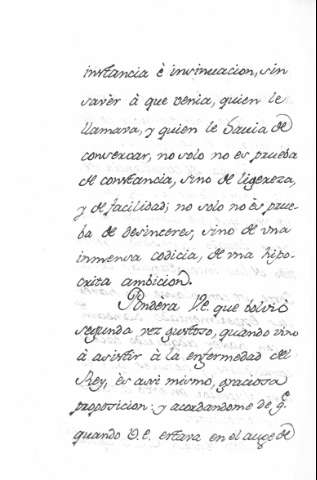 instancia è insinuacion, sin
saver à que venia, quien le
llamava, y quien le havia de
conservar, no solo no es prueba
de constancia, sino de ligereza,
y de facilidad; no solo no ès prue-
ba de desinteres, sino de una
inmensa codicia, de una hipo-
crita ambicion.
Pondèra V.e. que bolviò
segunda vez gustoso, quando vino
à asistir à la enfermedad del
Rey, ès asi mismo, graciosa
proposicion: y acordandome de q.e
quando V.e. estava en el auge de